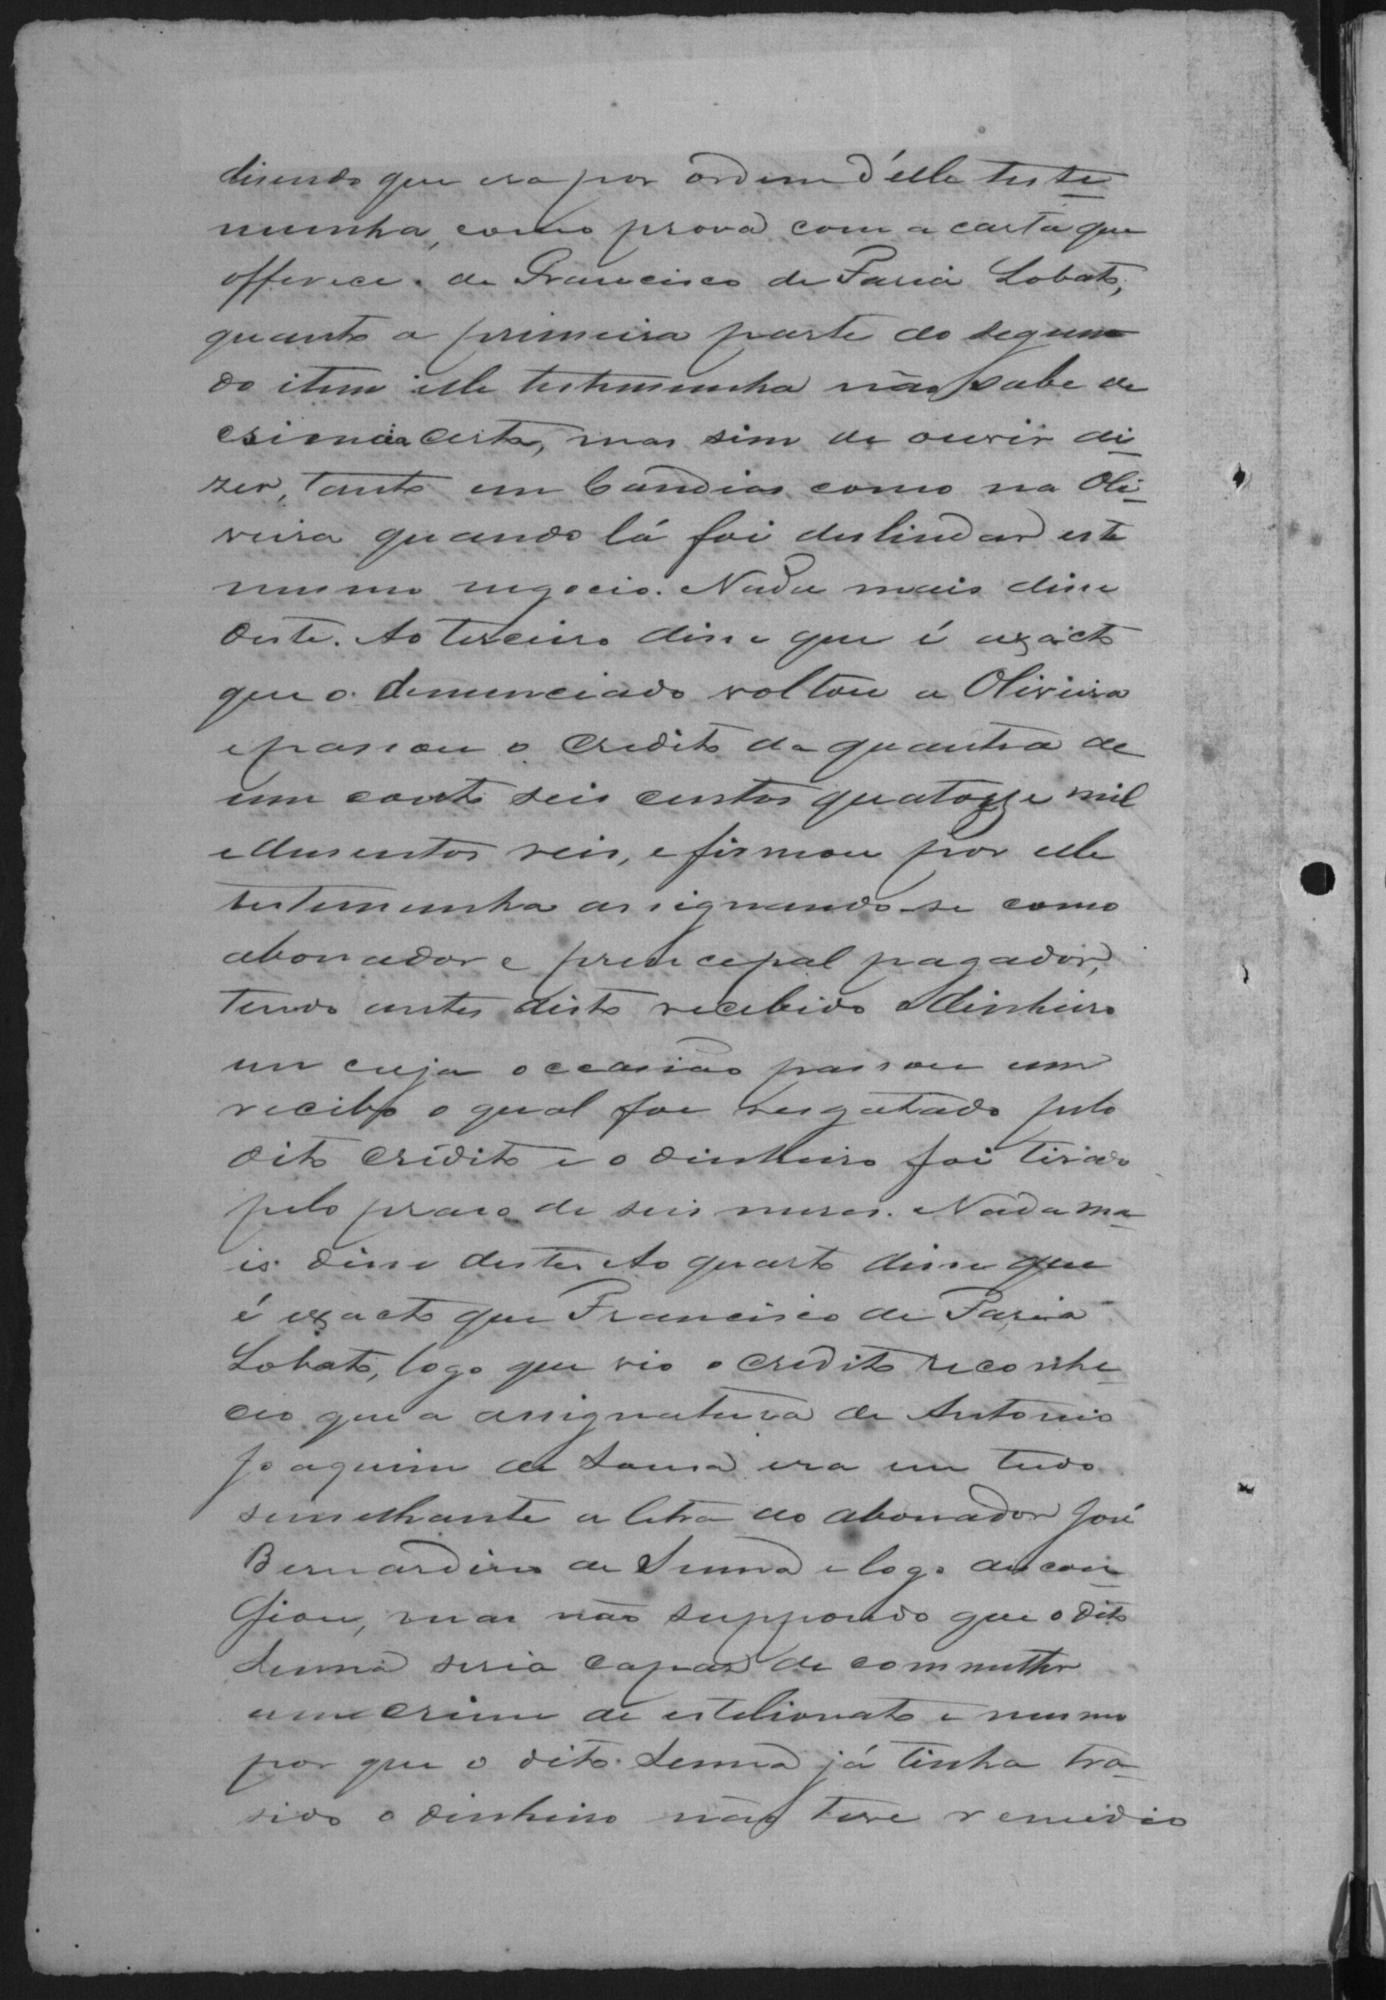 disendo que era por ordem d'elle teste
munha, como prova com a carta que
offerece. de Francisco de Faria Lobato,
quanto a primeira parte do segun
do item elle testemunha não sabe de
certo, mas sim de ouvir di
zer, tanto em Candias como na Oli
veira quando lá foi deslindar este
mesmo negocio. Nada mais disse
deste. Ao terceiro disse que é exacto
que o denunciado voltou a Oliveira
e passou o credito da quantia de
um conto seis centos quatorze mil
e dusentos reis, e firmou por elle
testemunha assignando-se como
abonador e principal pagador,
tendo antes disto recebido o dinheiro
em cuja occasião passou um
recibo o qual foi resgatado pelo
dito crédito e o dinheiro foi tirado
pelo praso de seis meses. Nada ma
is disse deste. Ao quarto disse que
é exacto que Francisco de Faria
Lobato, logo que vio o credito reconhe
ceo que a assignatura de Antonio
Joaquim de Sousa era em tudo
semelhante a letra do abonador José
Bernardino de Senna e logo descon
fiou, mas não suppondo que o dito
Senna seria capas de commetter
um crime de estelionato e mesmo
por que o dito Senna já tinha tra
sido o dinheiro não teve remedio